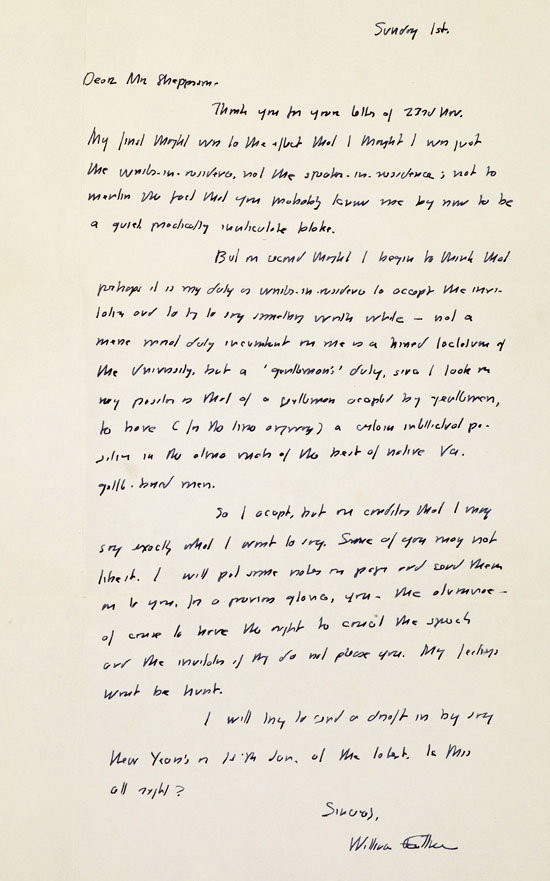 Sunday 1st.
Dear Mr Sheppson-
Thank you for your letter of 23rd Nov.
My first thought was to the effect that I thought I was just
the writer-in-residence, not the speaker-in-residence; not to
mention the fact that you probably know me by now to be
a quiet practically inarticulate bloke.
But on second thought I begin to think that
perhaps it is my duty as writer-in-residence to accept the invi-
tation and to try to say something worth while — not a
mere moral duty incumbent on me as a hired of
the University, but a 'gentleman's' duty, since I look on
my position as that of a gentleman accepted by gentlemen,
to have (for the time anyway) a certain intellectual po-
sition in the alma mater of the best of native Va.
men.
So I accept, but on condition that I may
say exactly what I want to say. Some of you may not
like it. I will put some notes on paper and send them
on to you, for a previous glance, you - the alumnae -
of course to have the right to cancel the speech
and the invitation if they do not please you. My feelings
wont be hurt.
I will try to send a draft in by say
New Year's or 15th Jan. at the latest. Is this
all right?
Sincerely,
William